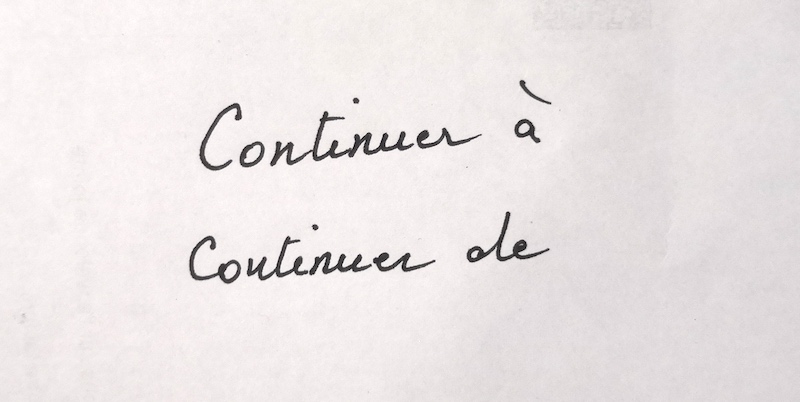 Continuer à
Continuer de